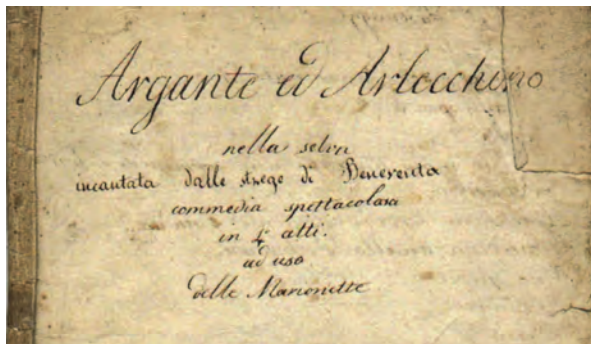 Argante ed Arlecchino
nella selva
incantata dalle strege di Benevento
commedia spettacolosa
in 4 atti.
ad uso
delle Marionette